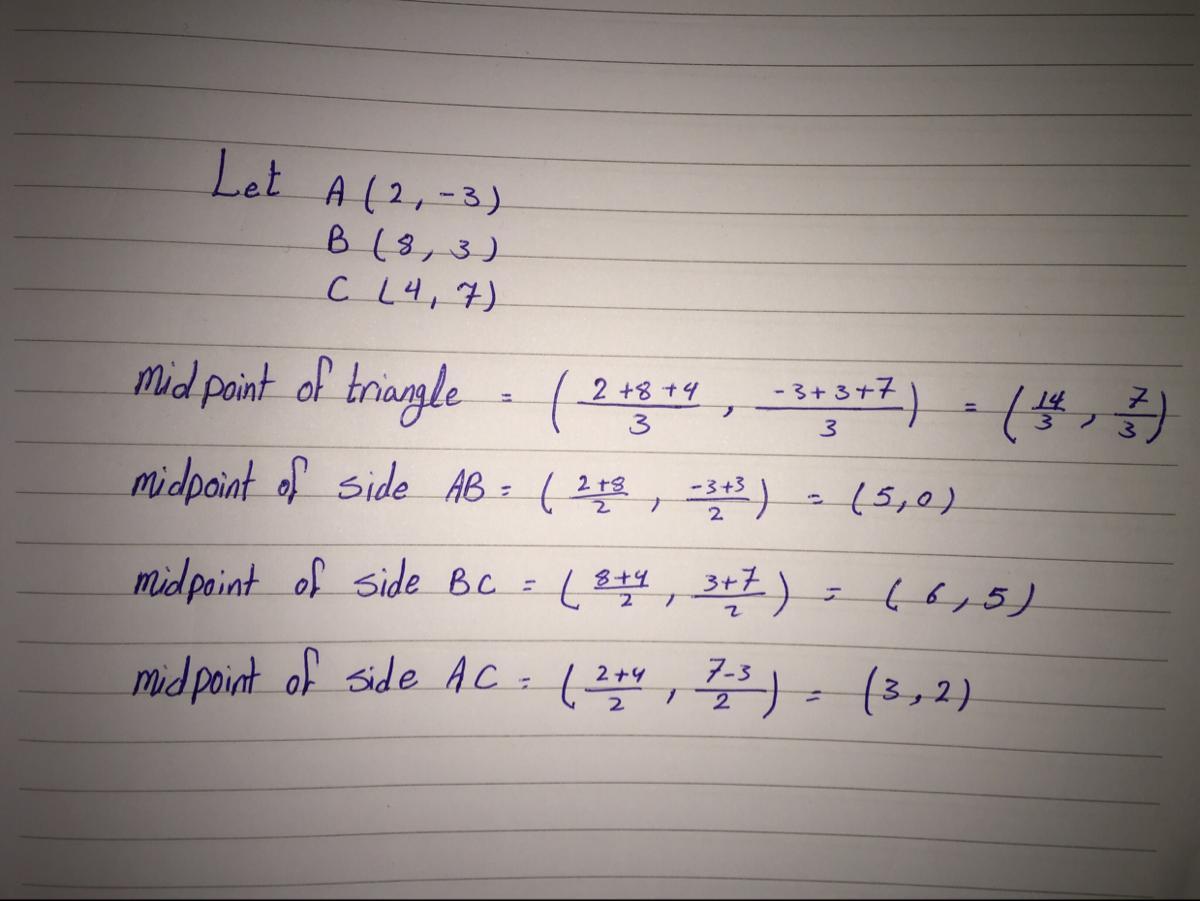 Let A (2, -3)
B (8, 3)
C (4, 7)
midpoint of triangle = ( \frac{2+8+4}{3} , \frac{-3+3+7}{3} ) = ( \frac{14}{3} , \frac{7}{3} )
midpoint of side AB = ( \frac{2+8}{2} , \frac{-3+3}{2} ) = (5,0)
midpoint of side BC = ( \frac{8+4}{2} , \frac{3+7}{2} ) = (6,5)
midpoint of side AC = ( \frac{2+4}{2} , \frac{7-3}{2} ) = (3,2)